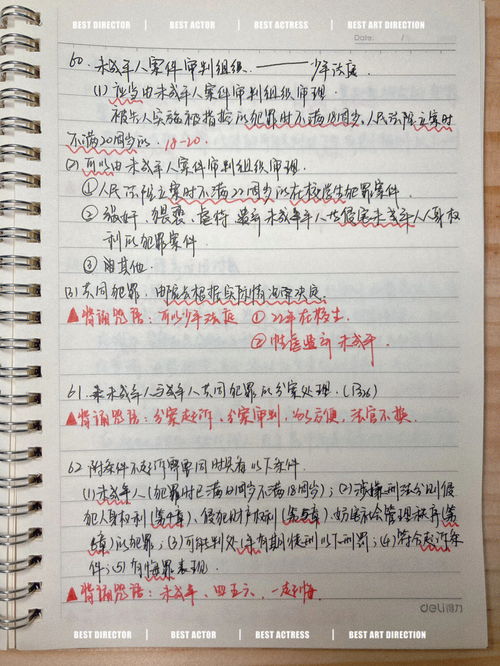 BEST DIRECTOR | BEST ACTOR | BEST ACTRESS | BEST ART DIRECTION
Date: /
60. 未成年人案件审判组织 —— 少年法庭.
(1) 应当由未成年人案件审判组织审理
被告人实施被指控的犯罪时不满18周岁、人民法院立案时
不满20周岁的. 18-20.
(2) 可以由未成年人案件审判组织审理.
① 人民法院立案时不满22周岁的在校学生犯罪案件
② 强奸、猥亵、虐待、遗弃未成年人等侵害未成年人人身权
利的犯罪案件
③ 其他.
(3) 共同犯罪, 由院长根据实际情况决定.
▲背诵咒语: 可以少年法庭 ① 22年在校生.
② 性虐遗弃未成年.
61. 未成年人与成年人共同犯罪的分案处理. (P336)
▲背诵咒语: 分案起诉, 分案审判, 方便, 法官不换.
62. 附条件不起诉需要同时具有以下条件.
(1) 未成年人 (犯罪时已满周岁不满18周岁); (2) 涉嫌刑法分则侵
犯人身权利 (第4章)、侵犯财产权利 (第5章)、妨害社会管理秩序 (第
6章) 的犯罪; (3) 可能判处1年有期徒刑以下刑罚; (4) 符合起诉条
件; (5) 有悔罪表现.
▲背诵咒语: 未成年、四五六、一起悔.
deli得力
BEST DIRECTOR | BEST ACTOR | BEST ACTRESS | BEST ART DIRECTION